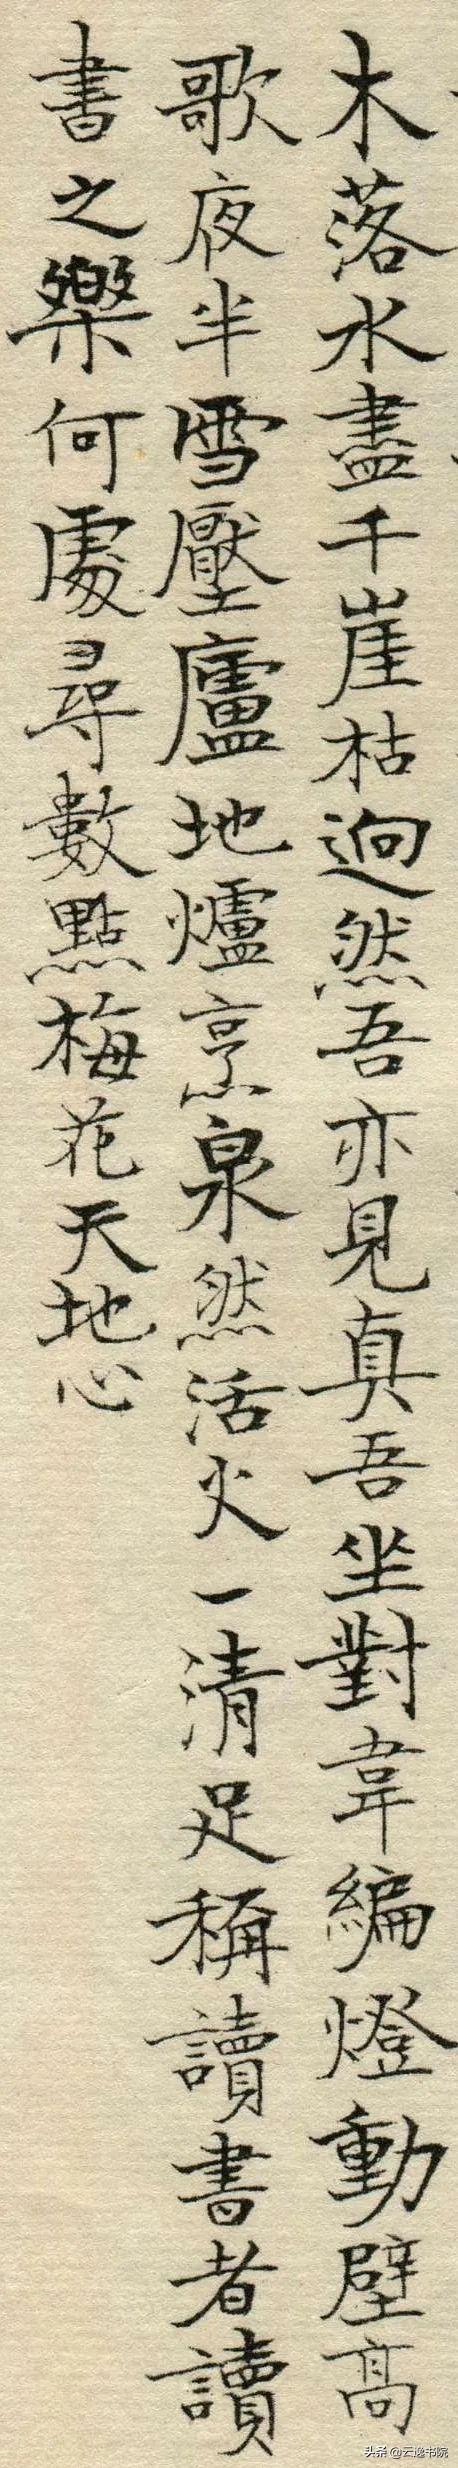 木落水盡千崖枯迥然吾亦見真吾坐對韋編燈動壁高
歌夜半雪壓廬地爐烹泉然活火一清足稱讀書者讀
書之樂何處尋數點梅花天地心
头条 @云逸书院